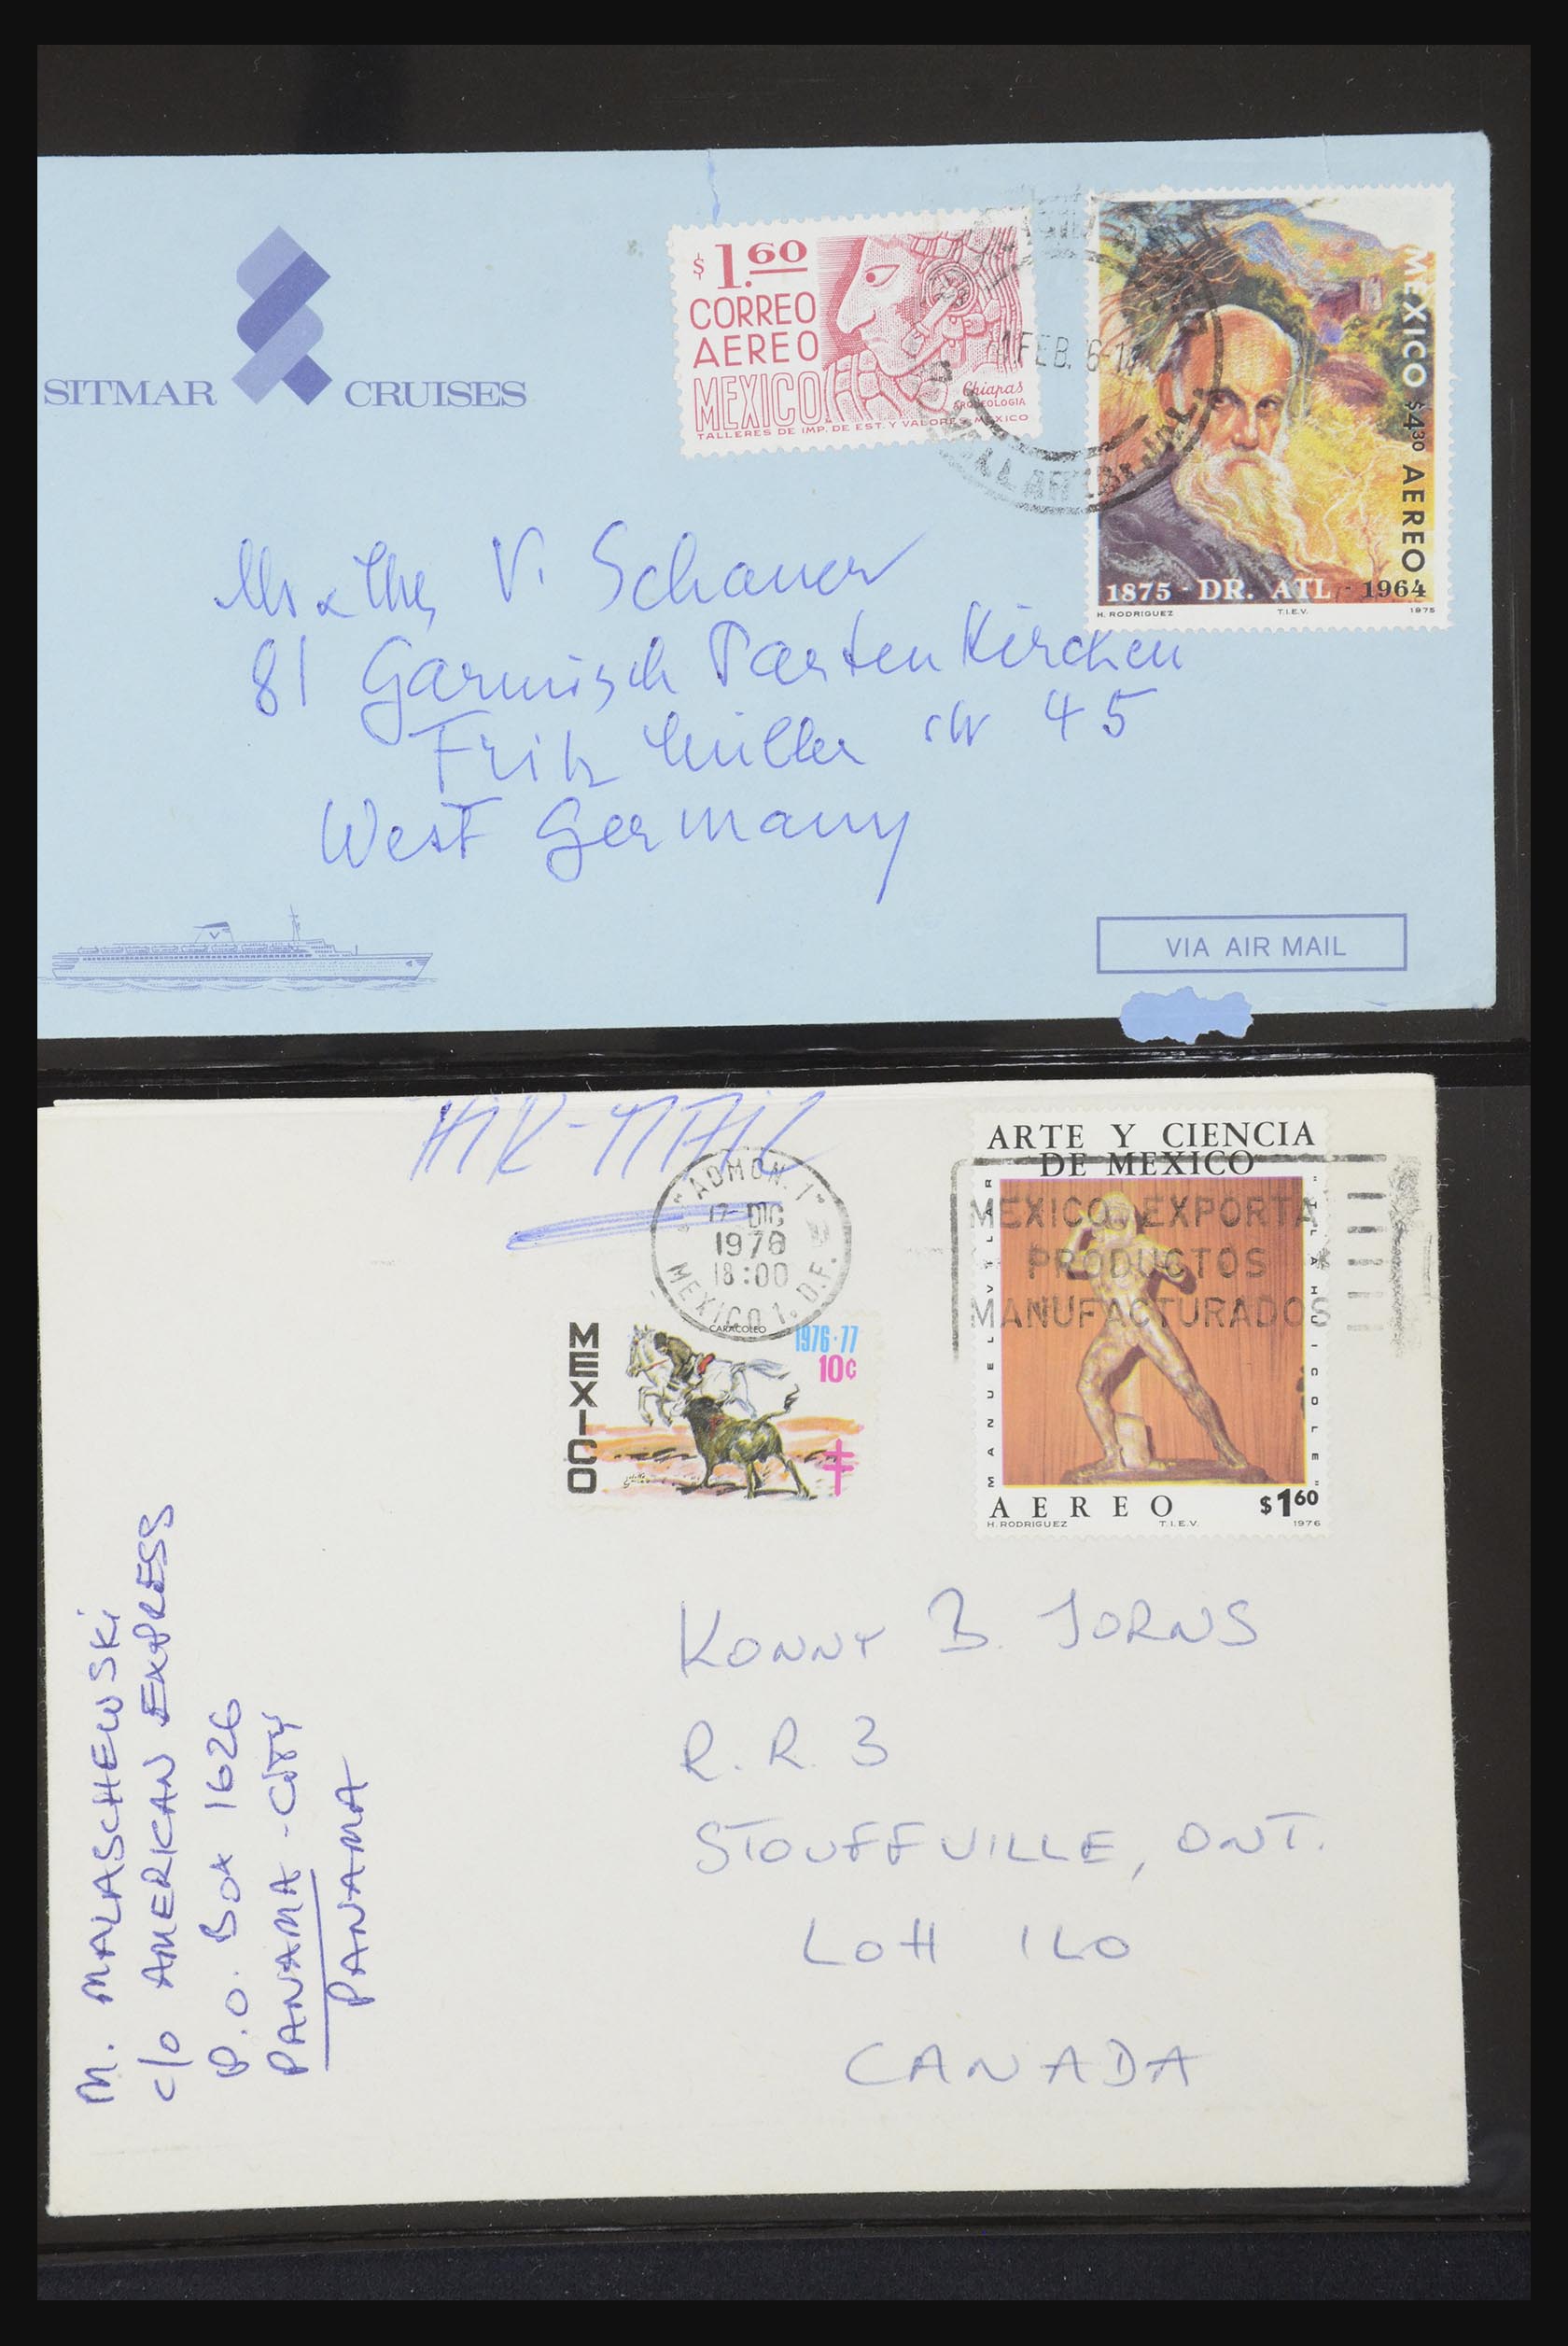 SITMAR CRUISES
$1.60
CORREO
AEREO
MEXICO
Chiapas
ARQUEOLOGIA
TALLERES DE IMP. DE EST. Y VALORES-MEXICO
1 FEB. 6-1
MEXICO $4.30 AEREO
1875 - DR. ATL - 1964
H. RODRIGUEZ T.I.E.V. 1975
Mr & Mrs V. Schauer
81 Garmisch Partenkirchen
Fritz Müller str 45
West Germany
VIA AIR MAIL
AIR-MAIL
"ADMON. 1"
17 DIC
1976
18:00
MEXICO 1. D.F.
ARTE Y CIENCIA
DE MEXICO
MEXICO EXPORTA
PRODUCTOS
MANUFACTURADOS
MANUEL VILAR
"TLAHUICOLE"
AEREO $1.60
H. RODRIGUEZ T.I.E.V. 1976
MEXICO
CARACOLEO
1976-77
10c
M. MALASCHEWSKI
c/o AMERICAN EXPRESS
P.O. Box 1626
PANAMA-CITY
PANAMA
KONNY B. JORNS
R.R. 3
STOUFFVILLE, ONT.
LOH 1LO
CANADA